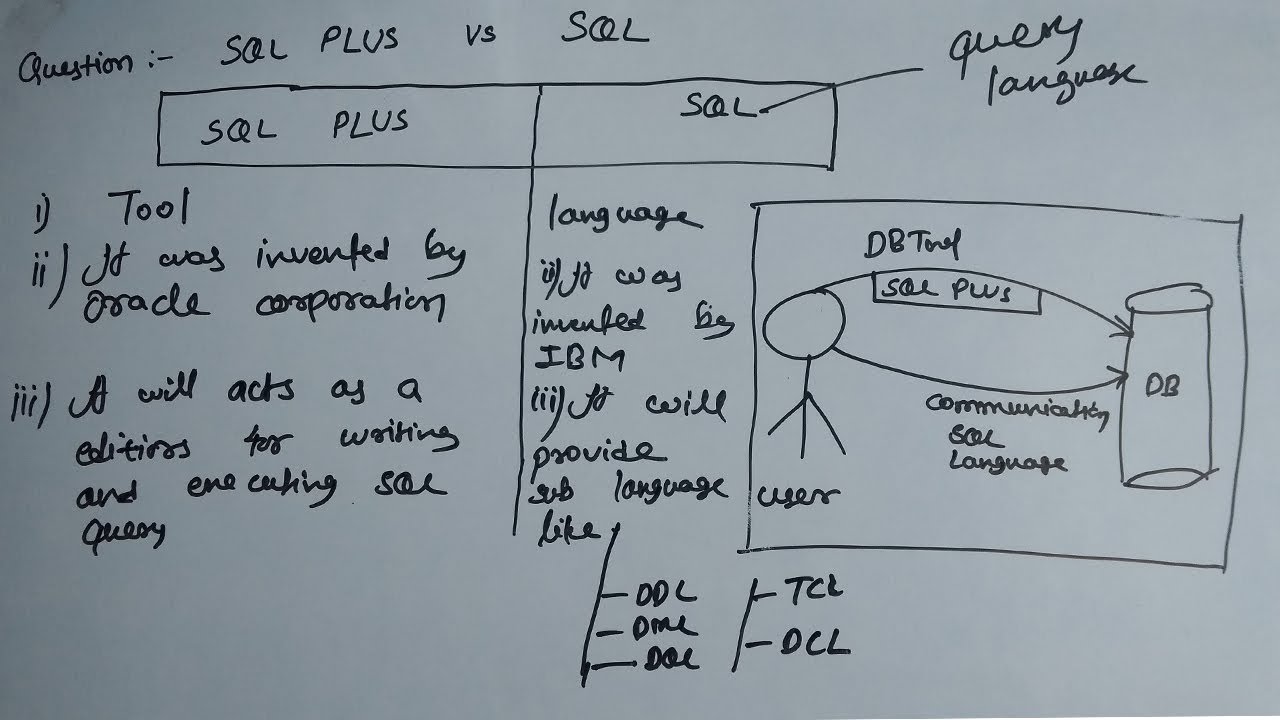 Question :- SQL PLUS vs SQL
query
language
SQL PLUS
SQL
i) Tool
ii) It was invented by
oracle corporation
iii) It will acts as a
editiors for writing
and executing SQL
query
language
ii) It was
invented by
IBM
(iii) It will
provide
sub language
like
DDL
DML
DQL
TCL
DCL
DB Tool
SQL PLUS
DB
communication
SQL
Language
user